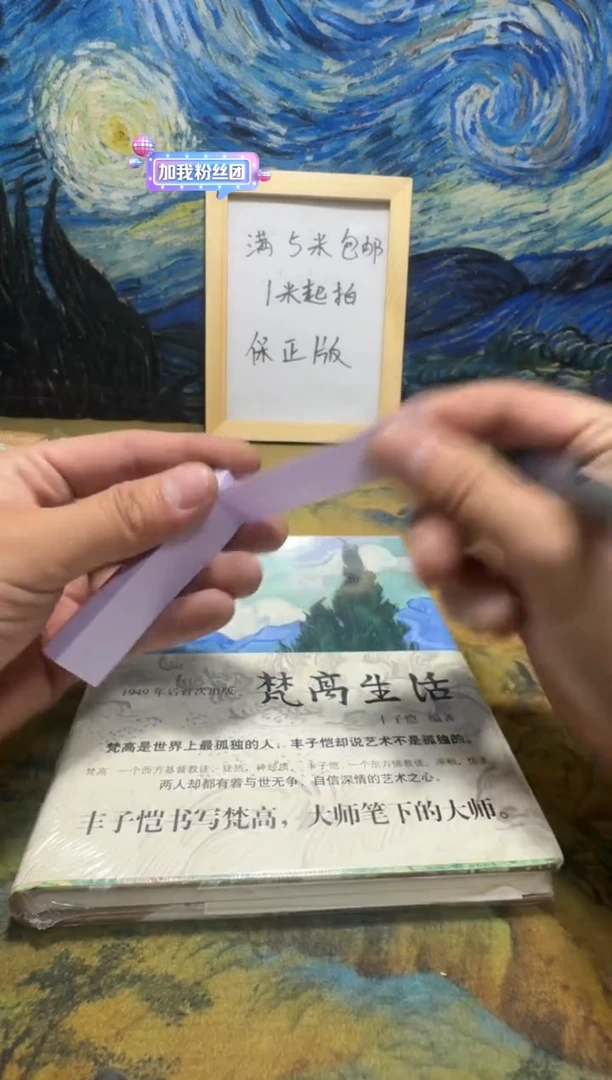 加我粉丝团
满5米包邮
1米起拍
保正版
1949年后首次出版
梵高生活
丰子恺 编著
梵高是世界上最孤独的人，丰子恺却说艺术不是孤独的。
梵高 一个西方基督教徒、
丰子恺，一个东方佛教徒、
两人却都有着与世无争、自信深情的艺术之心。
丰子恺书写梵高，大师笔下的大师。